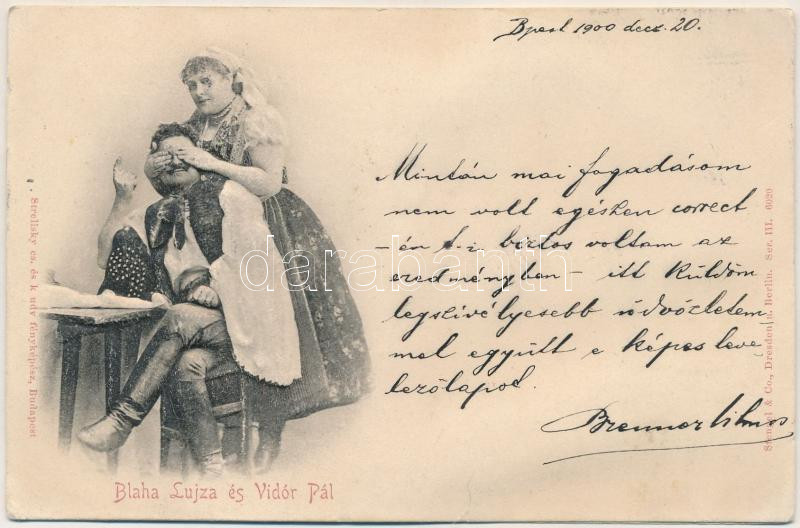 Bpest 1900 decz. 20.
Mintán mai fogadásom
nem volt egészen correct
-én t.i. biztos voltam az
eredményben - itt küldöm
legszivélyesebb üdvözletem
mel együtt e képes leve
lezőlapot.
Brenner Vilmos
darabanth
Blaha Lujza és Vidór Pál
Strelisky cs. és k. udv fényképész, Budapest
Stengel & Co., Dresden u. Berlin. Ser. III. 6920